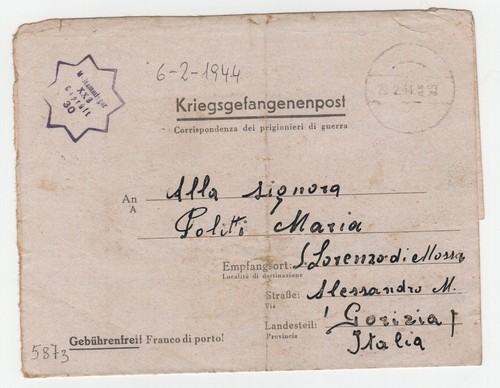 XX B
Geprüft
30
6-2-1944
Kriegsgefangenenpost
Corrispondenza dei prigionieri di guerra
An Alla signora
A
Politti Maria
Empfangsort: S. Lorenzo di Mossa
Località di destinazione
Straße: Alessandro M.
Via
Landesteil: Gorizia
Provincia
Italia
Gebührenfrei! Franco di porto!
5873